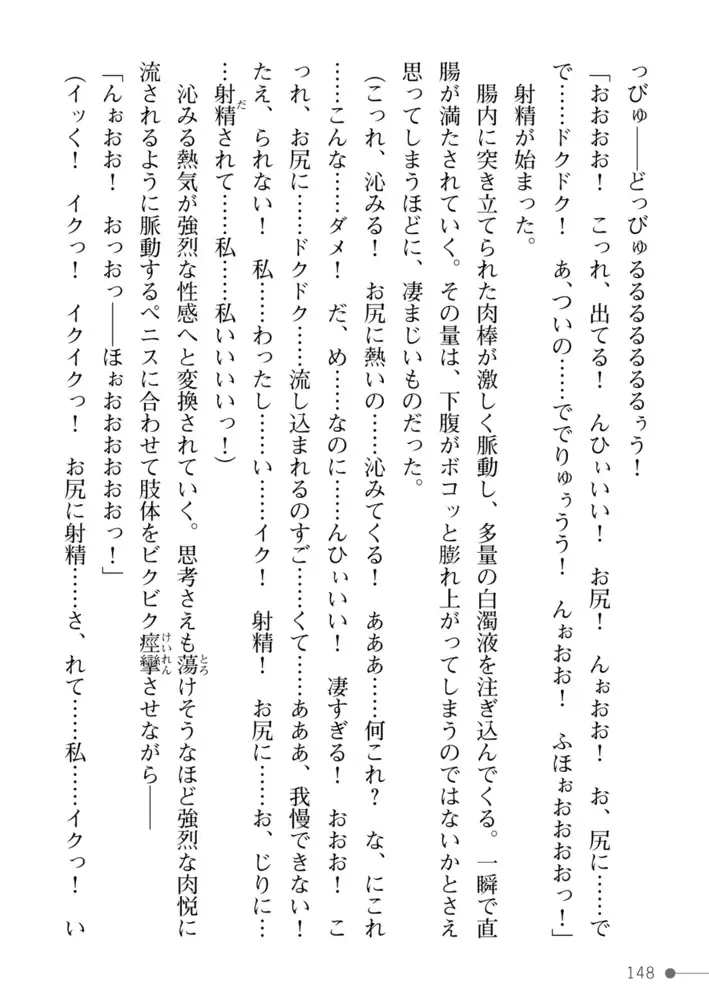 っびゅ――どっびゅるるるるるるぅう！
「おおおお！　こっれ、出てる！　んひぃいい！　お尻！　んぉおお！　お、尻に……で
で……ドクドク！　あ、ついの……ででりゅぅうう！　んぉおお！　ふほぉおおおおっ！」
射精が始まった。
腸内に突き立てられた肉棒が激しく脈動し、多量の白濁液を注ぎ込んでくる。一瞬で直
腸が満たされていく。その量は、下腹がボコッと膨れ上がってしまうのではないかとさえ
思ってしまうほどに、凄まじいものだった。
（こっれ、沁みる！　お尻に熱いの……沁みてくる！　あああ……何これ？　な、にこれ
……こんな……ダメ！　だ、め……なのに……んひぃいい！　凄すぎる！　おおお！　こ
っれ、お尻に……ドクドク……流し込まれるのすご……くて……あああ、我慢できない！
たえ、られない！　私……わったし……い……イク！　射精！　お尻に……お、じりに…
…射精されて……私……私いいいいっ！）
沁みる熱気が強烈な性感へと変換されていく。思考さえも蕩けそうなほど強烈な肉悦に
流されるように脈動するペニスに合わせて肢体をビクビク痙攣させながら――
「んぉおお！　おっおっ――ほぉおおおおおおっ！」
（イッく！　イクっ！　イクイクっ！　お尻に射精……さ、れて……私……イクっ！　い
148